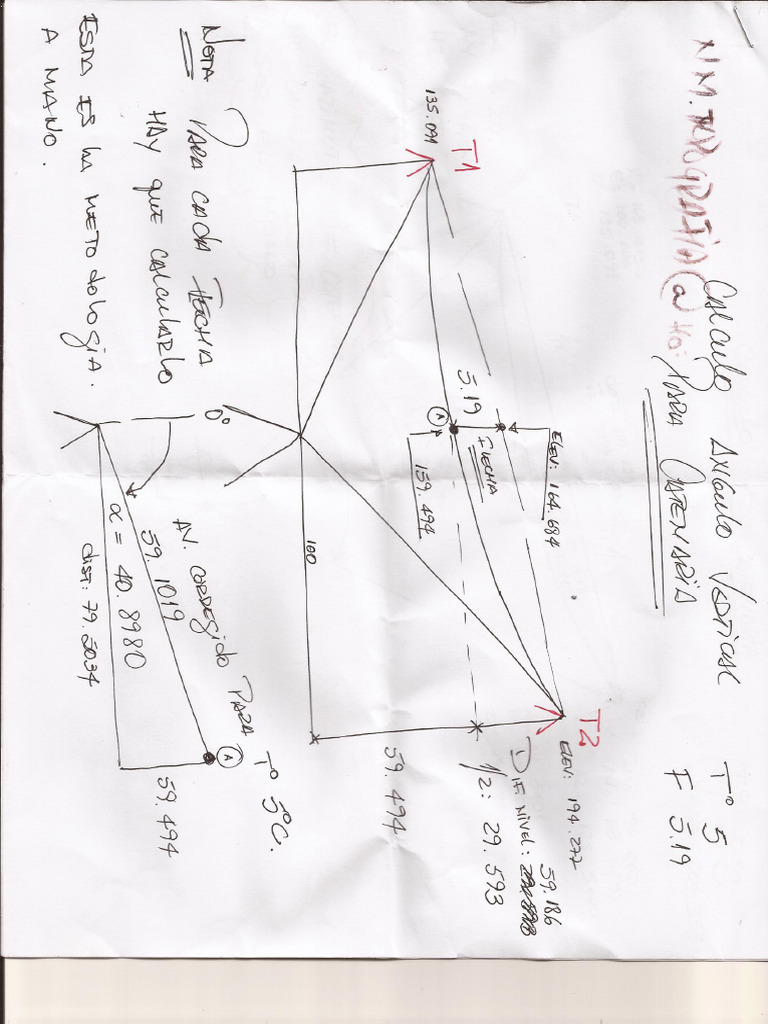 NM. TOPOGRAFIA
Calculo Angulo Vertical
Para Catenaria
T° 5
F 5.19
T1
135.091
ELEV: 164.684
5.19
Flecha
A
159.494
T2
ELEV: 194.277
59.186
Dif. Nivel:
1/2: 29.593
59.494
100
Nota: Para cada Flecha
Hay que calcularlo
Esta es la metodologia.
A mano.
0°
AV. Corregido Para T° 5°C.
59.1019
α = 40.8980
dist: 79.5034
A
59.494